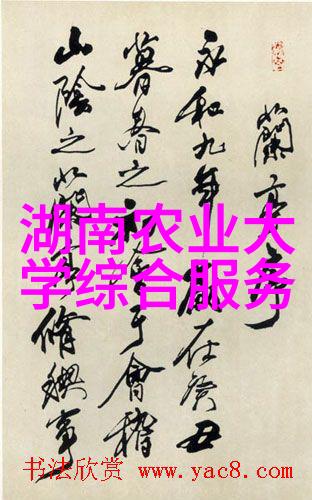 蘭亭序
永和九年歲在癸丑
暮春之初會于會稽
山陰之蘭亭脩禊事
湖南农业大
学综合服务
书法欣赏 www.yac8.com